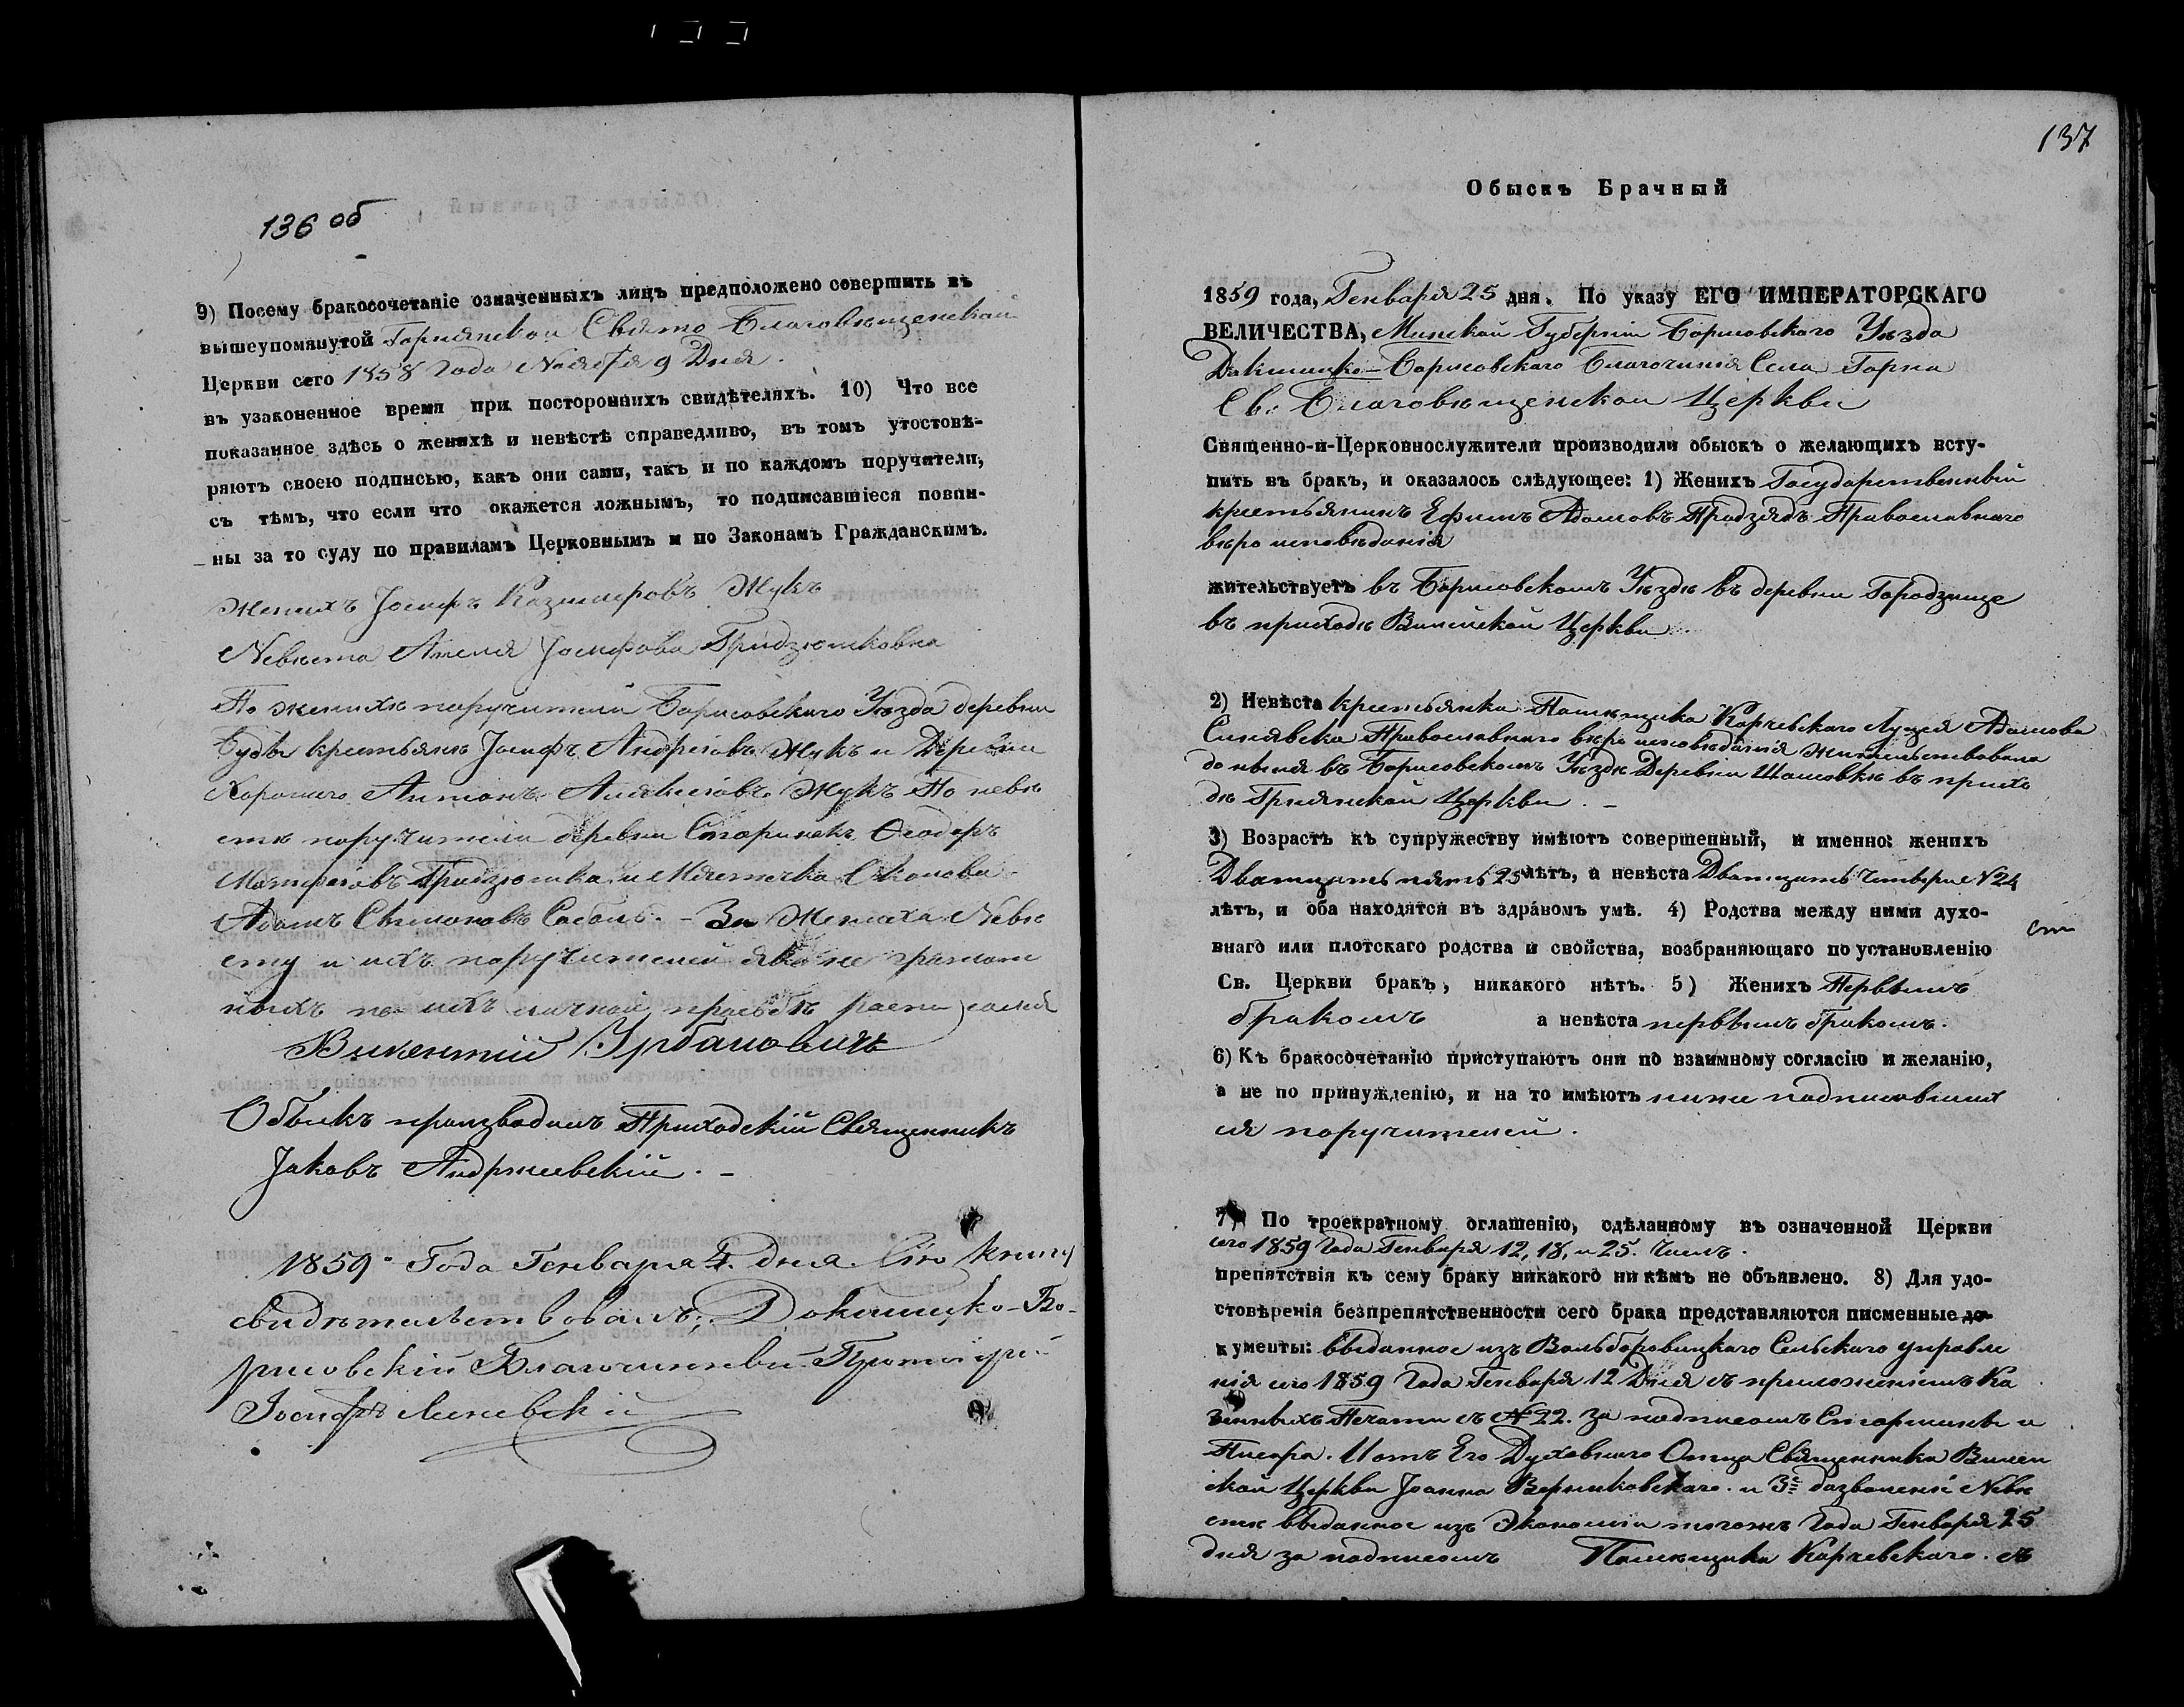 136 об
9) Посему бракосочетаніе означенныхъ лицъ предположено совершить въ
вышеупомянутой Горнянской Свято Благовѣщенской
Церкви сего 1858 Года Ноября 9 Дня.
въ узаконенное время при постороннихъ свидѣтеляхъ. 10) Что все
показанное здѣсь о женихѣ и невѣстѣ справедливо, въ томъ утостовѣ-
ряютъ своею подписью, какъ они сами, такъ и по каждомъ поручители,
съ тѣмъ, что если что окажется ложнымъ, то подписавшіеся повин-
ны за то суду по правиламъ Церковнымъ и по Законамъ Гражданскимъ.
Женихъ Іосифъ Казимировъ Жукъ
Невѣста Анеля Іосифова Гридзюшковна
По женихѣ поручители Борисовскаго Уѣзда деревни
Буды крестьяне Іосифъ Андреевъ Жукъ и Деревни
Хорошаго Антонъ Жукъ По невѣ
стѣ поручители деревни Старинокъ Ѳеодоръ
Матфеевъ Гридзюшка и Мѣстечка
Адамъ Симоновъ Соболь. – За Жениха Невѣ
сту и ихъ поручителей яко не грамот
ныхъ по ихъ личной прозьбѣ росписался
Викентій Урбановичъ
Обыскъ производилъ Приходскій Священникъ
Іаковъ Андржеевскій. –
1859 Года Генваря 4 дня. Сію книгу
свидѣтельствовалъ: Докшицко-Бо-
рисовскій Благочинный Протоіерей
Іосифъ
137
Обыскъ Брачный
1859 года, Генваря 25 дня. По указу ЕГО ИМПЕРАТОРСКАГО
ВЕЛИЧЕСТВА, Минской Губерніи Борисовскаго Уѣзда
Докшицко-Борисовскаго Благочинія Села Горна
Св. Благовѣщенской Церкви
Священно-и-Церковнослужители производили обыскъ о желающихъ всту-
пить въ бракъ, и оказалось слѣдующее: 1) Женихъ Государственный
крестьянинъ Ефимъ Адамовъ Продзядъ Православнаго
вѣроисповѣданія
жительствуетъ въ Борисовскомъ Уѣздѣ въ деревни Городзище
въ приходѣ Вилейской Церкви
2) Невѣста крестьянка Помѣщика Корчевскаго Луцея Адамова
Синявска Православнаго вѣроисповѣданія жительствовала
до нынѣ въ Борисовскомъ Уѣздѣ Деревни Шамовкѣ въ прихо
дѣ Грнянской Церкви. –
3) Возрастъ къ супружеству имѣютъ совершенный, и именно: женихъ
Дватцать пять 25 лѣтъ, а невѣста Дватцать Четыре 24
лѣтъ, и оба находятся въ здравомъ умѣ. 4) Родства между ними духо-
внаго или плотскаго родства и свойства, возбраняющаго по установленію
Св. Церкви бракъ, никакого нѣтъ. 5) Женихъ Первымъ
бракомъ а невѣста первымъ бракомъ.
6) Къ бракосочетанію приступаютъ они по взаимному согласію и желанію,
а не по принужденію, и на то имѣютъ ниже подписавших
ся поручителей.
7) По троекратному оглашенію, сдѣланному въ означенной Церкви
сего 1859 Года Генваря 12, 18, и 25. Числъ.
препятствія къ сему браку никакого ни кѣмъ не объявлено. 8) Для удо-
стовѣренія безпрепятственности сего брака представляются писменные до-
кументы: выданное изъ Сельскаго управле
нія сего 1859 Года Генваря 12 Дня съ приложеніемъ Ка
зенныхъ Печати съ № 22. за подписомъ Старшины и
Писара. И отъ Его Духовнаго Отца Священника Вилей
ской Церкви Іоанна Верниковскаго. и 3е дозволеніе Невѣ
стѣ выданное изъ Экономіи тогожъ Года Генваря 25
дня за подписомъ Помѣщика Корчевскаго. съ